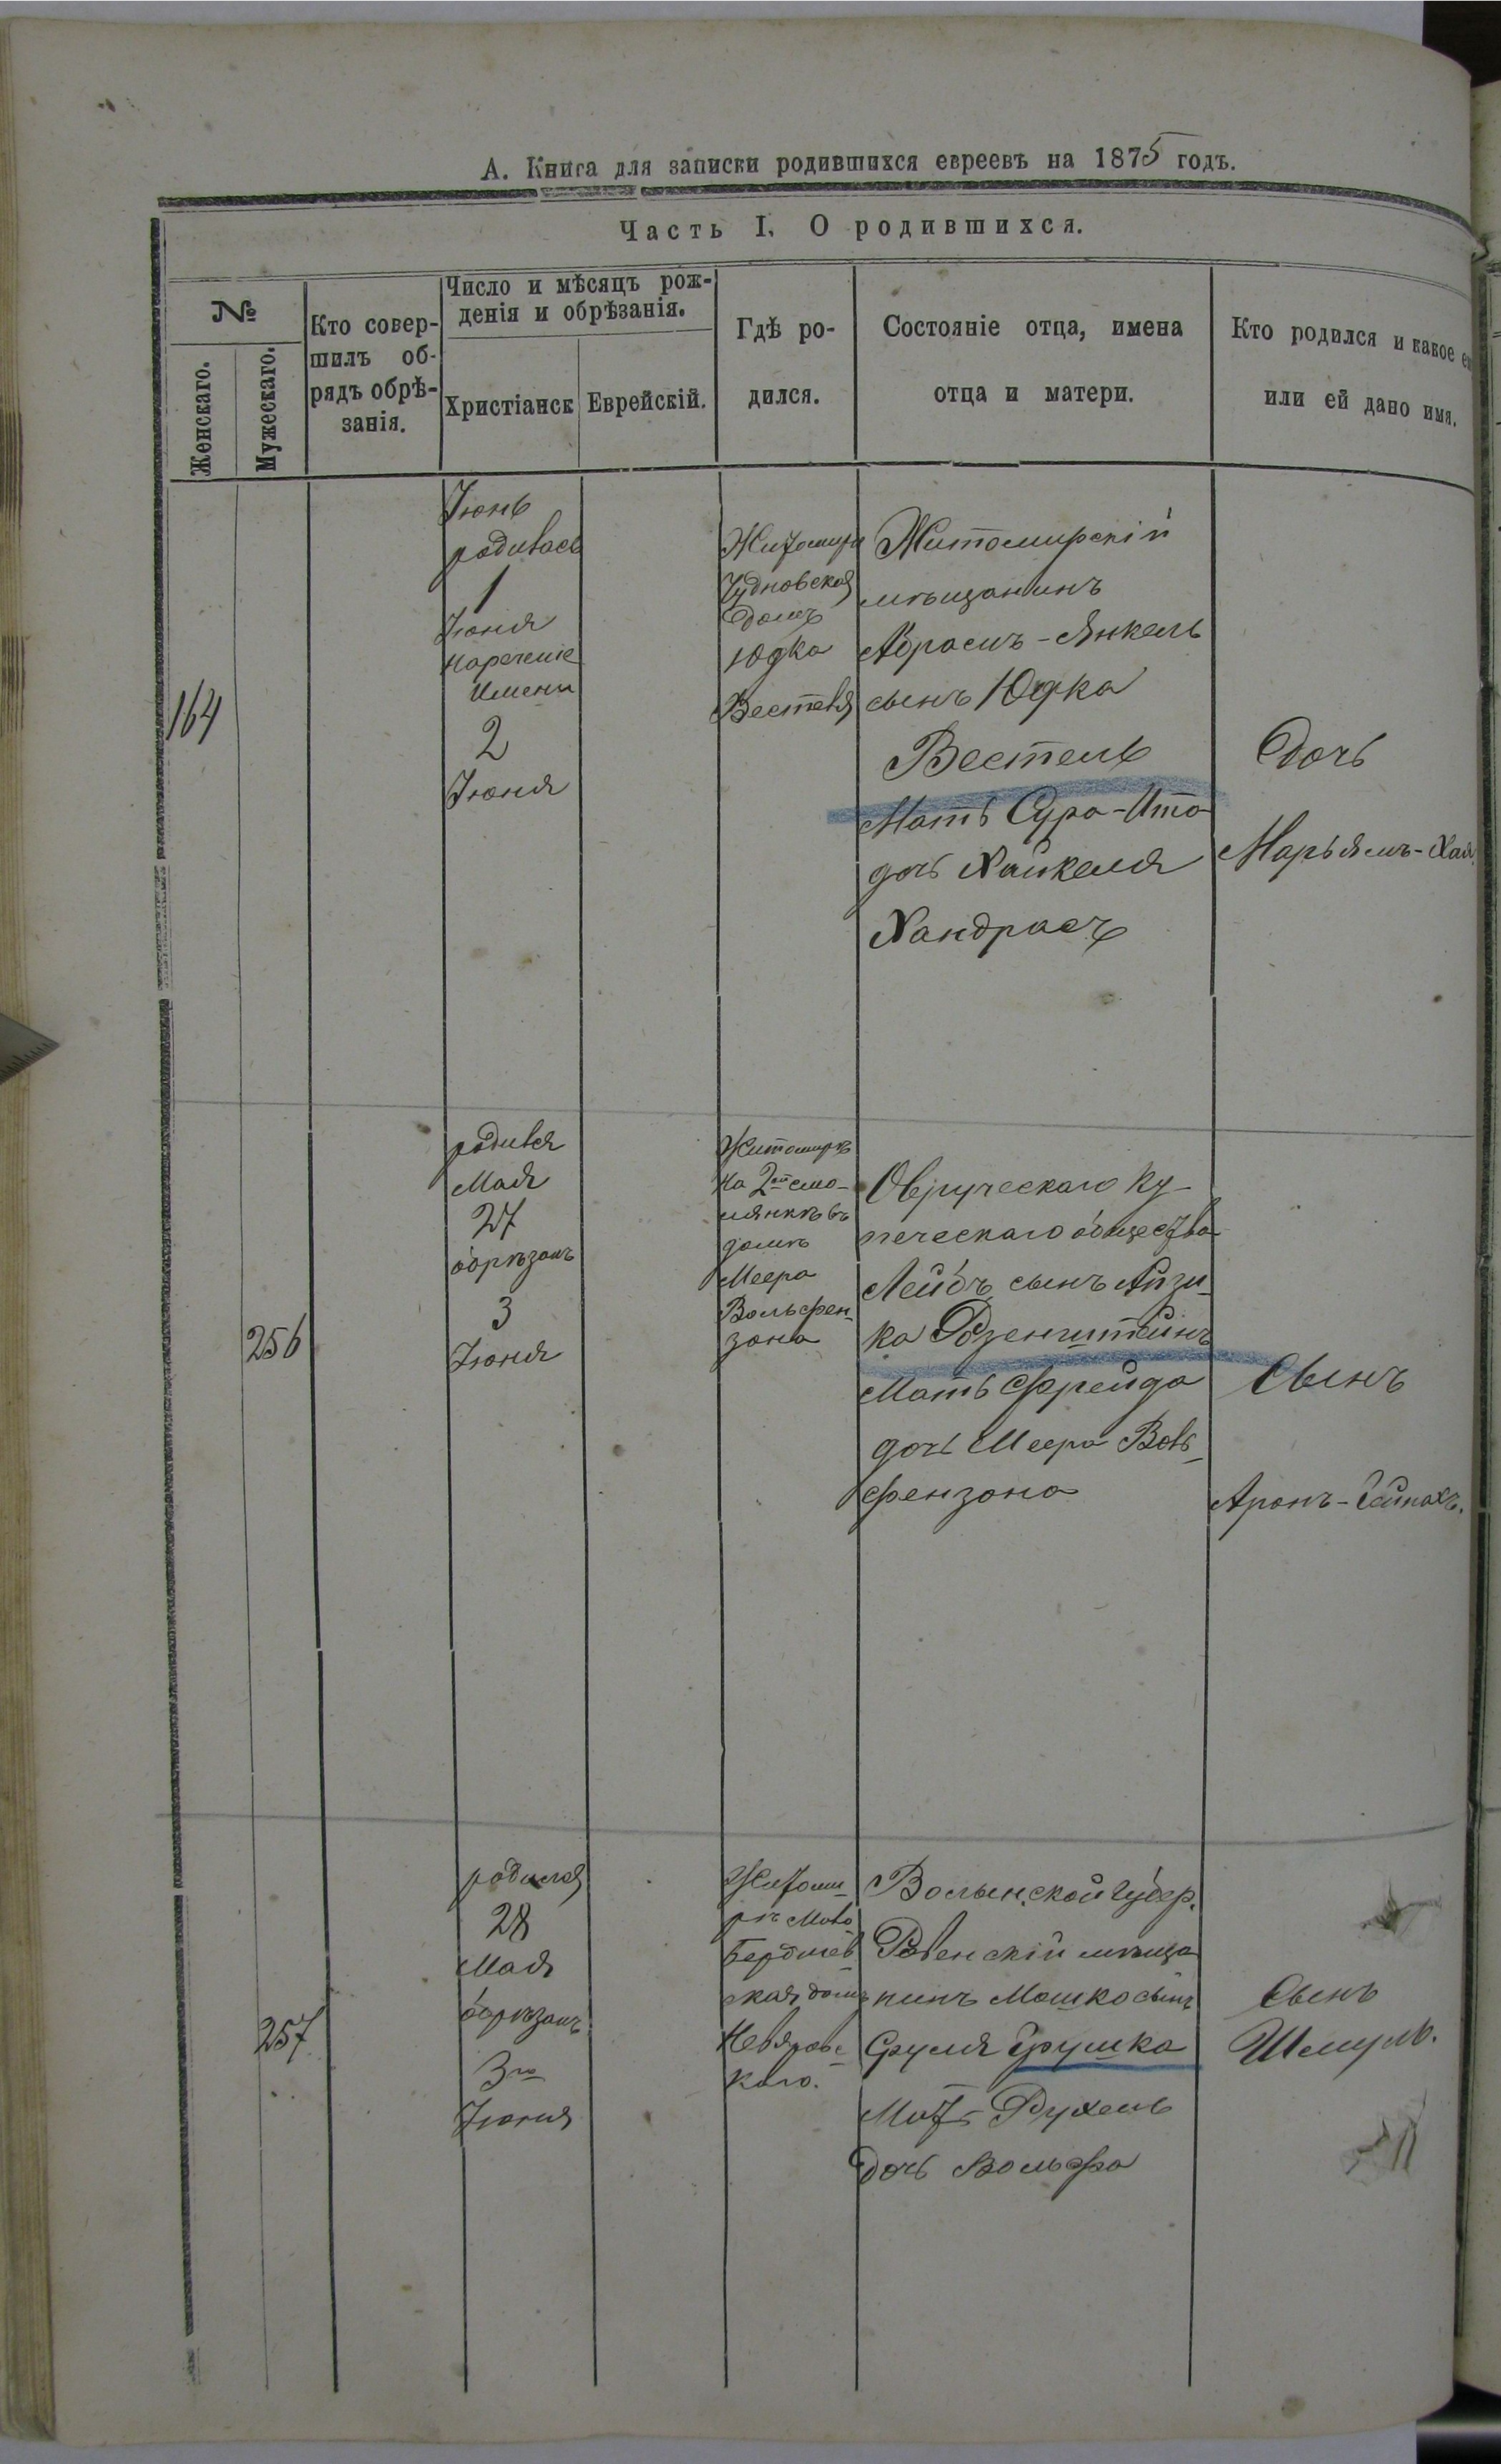 А. Книга для записки родившихся евреевъ на 1875 годъ.
Часть I. О родившихся.
№
Женскаго.
Мужескаго.
Кто совер-
шилъ об-
рядъ обрѣ-
занія.
Число и мѣсяцъ рож-
денія и обрѣзанія.
Христіанск
Еврейскій.
Гдѣ ро-
дился.
Состояніе отца, имена
отца и матери.
Кто родился и какое
или ей дано имя.
164
Іюнь
родилась
1
Іюня
нареченіе
имени
2
Іюня
Житомиръ
Чудновская
домъ
Юдка
Вестеля
Житомирскій
мѣщанинъ
Абрамъ-Янкель
сынъ Юдка
Вестель
Мать Сура-Ита
дочь Хайкеля
Хандрасъ
Дочь
Марьямъ-Хая
256
родился
Мая
27
обрѣзанъ
3
Іюня
Житомиръ
на 2й смо-
лянкѣ въ
домѣ
Меера
Вольфен-
зона
Овручскаго ку-
печескаго общества
Лейбъ сынъ Айзи-
ка Розенштейнъ
Мать Фрейда
дочь Меера Воль-
фензона
Сынъ
Аронъ-Гейнахъ.
257
родился
28
Мая
обрѣзанъ
3го
Іюня
Житоми-
рѣ Мало
Бердичев-
ская домъ
Невяровс-
каго.
Волынской Губер.
Ровенскій мѣща
нинъ Мошко сынъ
Сруля Грушка
Мать Рухель
дочь Вольфа
Сынъ
Шмуль.